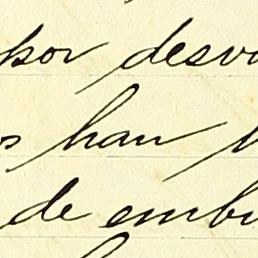 por desva
s han v
de embu